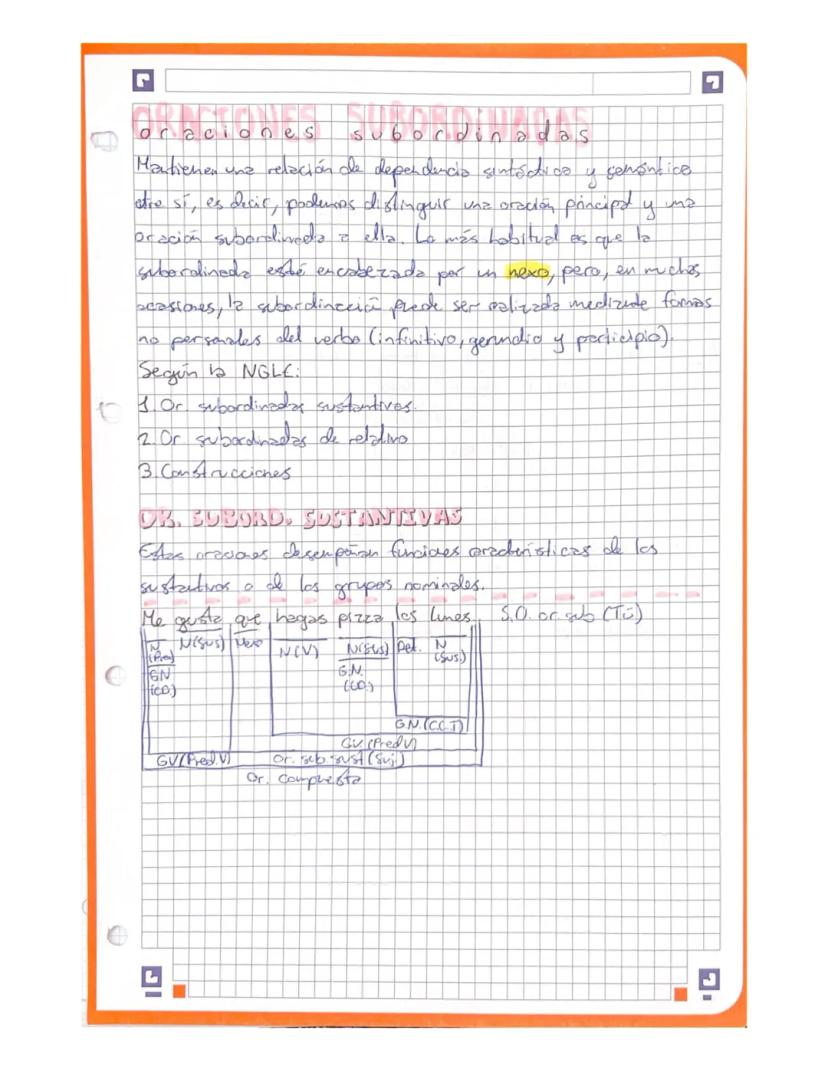 ORACIONES SUBORDINADAS
oraciones subordinadas
Mantienen una relación de dependencia sintáctica y semántica
entre sí, es decir, podemos distinguir una oración principal y una
oración subordinada a ella. Lo más habitual es que la
subordinada esté encabezada por un nexo, pero, en muchas
ocasiones, la subordinación puede ser realizada mediante formas
no personales del verbo (infinitivo, gerundio y participio).
Según la NGLE:
1. Or. subordinadas sustantivas.
2. Or subordinadas de relativo
3. Construcciones
OR. SUBORD. SUSTANTIVAS
Estas oraciones desempeñan funciones características de los
sustantivos o de los grupos nominales.
Me gusta que hagas pizza los lunes. S.O. or sub (Tú)
N N(Sus) Nexo N(V) N(Sus) Det. N
(Pro) (Sus.)
GN G.N.
(CD.) (CD.)
GN.(CC.T)
GV (Pred V)
GV(Pred.V) Or. sub sust (Suj)
Or. compuesta